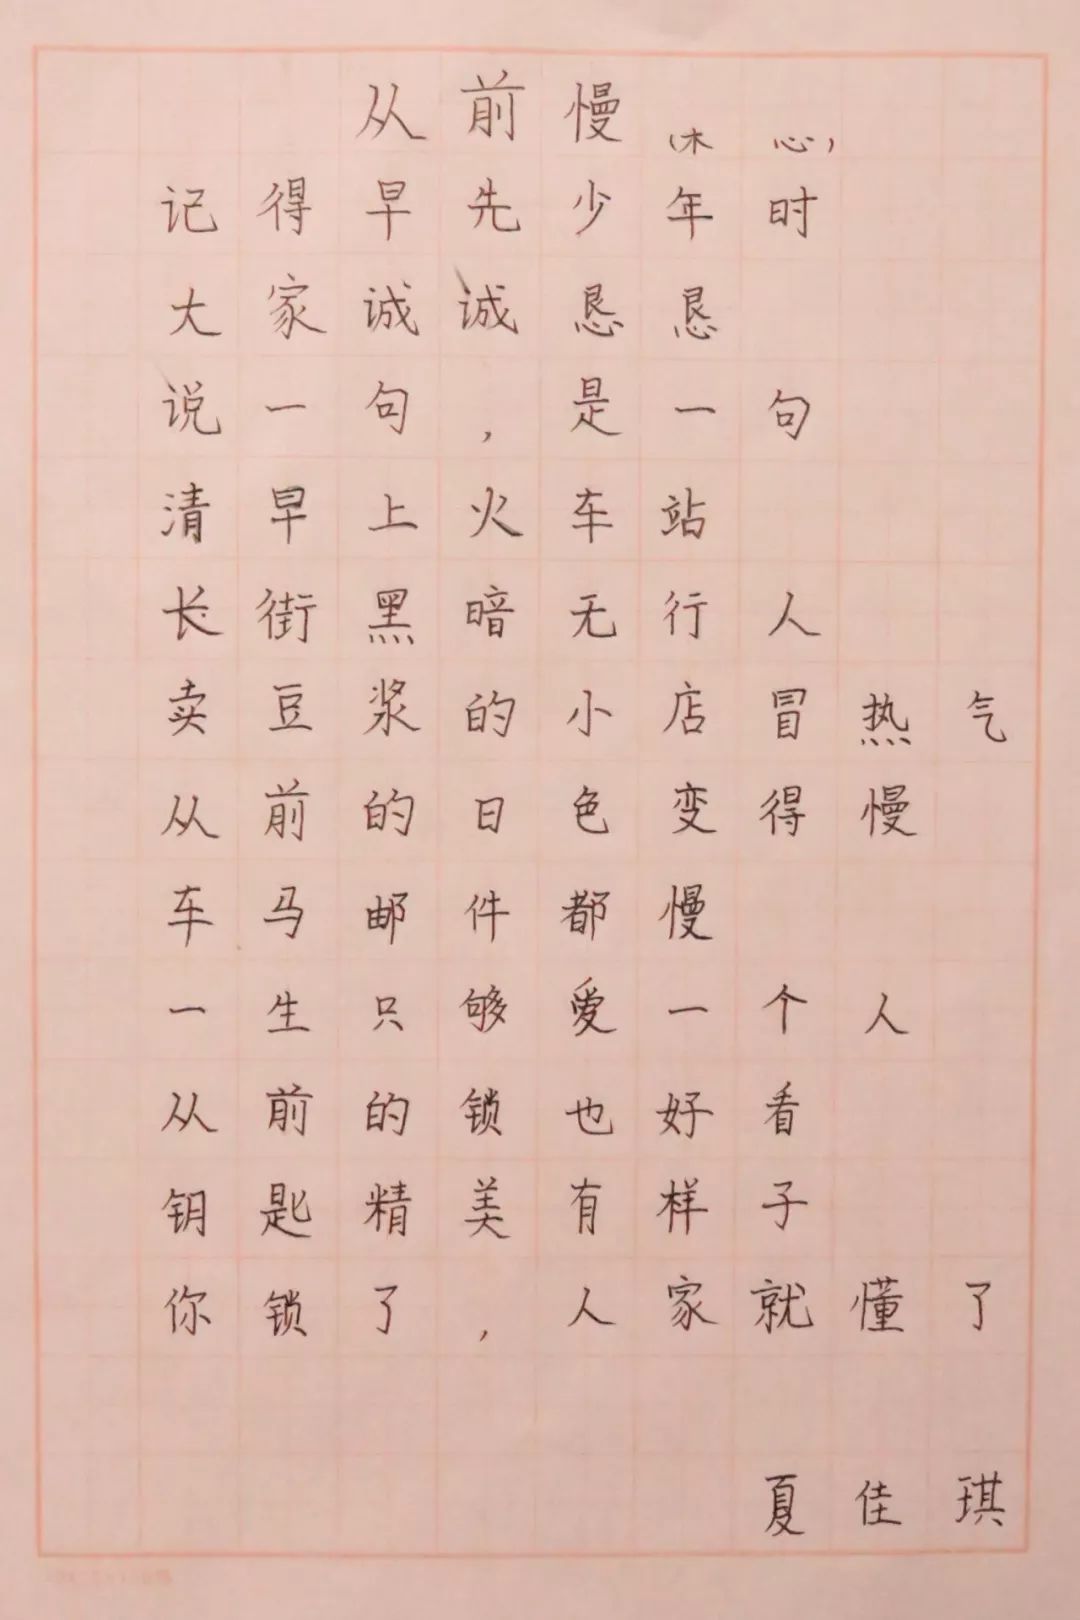 从前慢 (木心)
记得早先少年时
大家诚诚恳恳
说一句,是一句
清早上火车站
长街黑暗无行人
卖豆浆的小店冒热气
从前的日色变得慢
车马邮件都慢
一生只够爱一个人
从前的锁也好看
钥匙精美有样子
你锁了,人家就懂了
夏佳琪